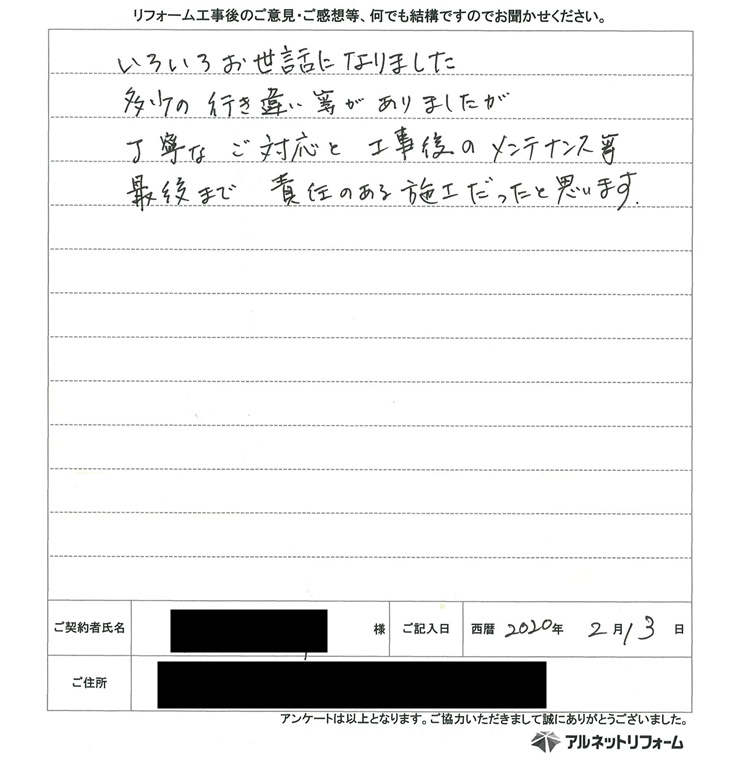 リフォーム工事後のご意見・ご感想等、何でも結構ですのでお聞かせください。
いろいろお世話になりました
多少の行き違い等がありましたが
丁寧なご対応と工事後のメンテナンス等
最後まで責任のある施工だったと思います.
ご契約者氏名 様 ご記入日 西暦 2020年 2月13日
ご住所
アンケートは以上となります。ご協力いただきまして誠にありがとうございました。
アルネットリフォーム